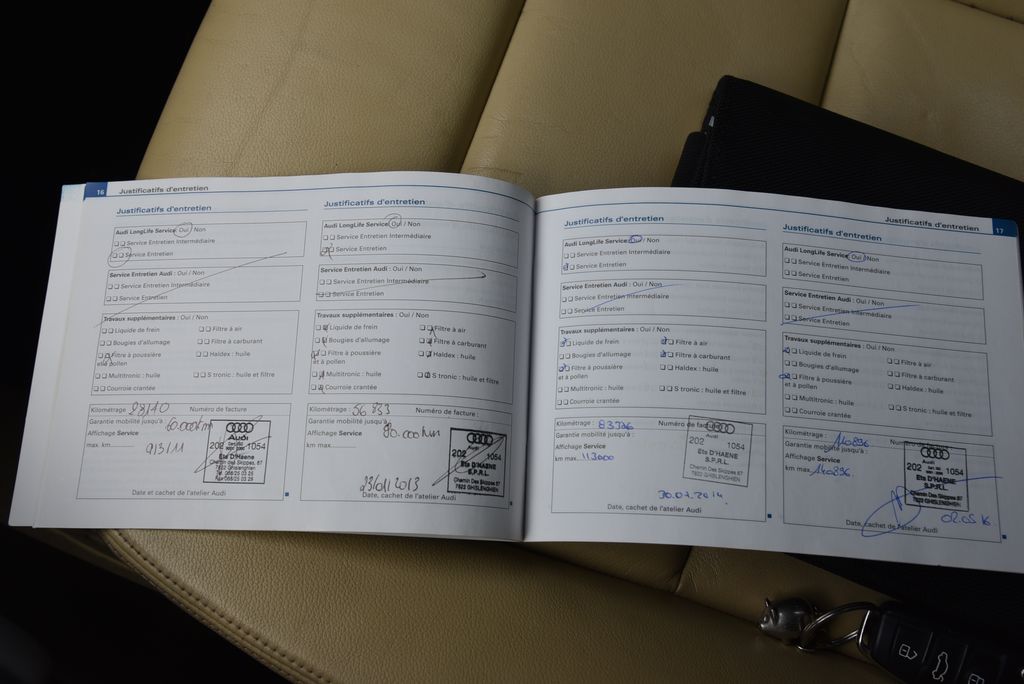 16 Justificatifs d'entretien
Justificatifs d'entretien
Audi LongLife Service: Oui / Non
Service Entretien Intermédiaire
Service Entretien
Service Entretien Audi : Oui / Non
Service Entretien Intermédiaire
Service Entretien
Travaux supplémentaires : Oui / Non
Liquide de frein Filtre à air
Bougies d'allumage Filtre à carburant
Filtre à poussière Haldex : huile
et à pollen
Multitronic : huile S tronic : huile et filtre
Courroie crantée
Kilométrage Numéro de facture
Garantie mobilité jusqu'à : 60.000km
Affichage Service
km max.
9/3/11
Audi
202 1054
Ets D'HAENE
S.P.R.L.
Chemin Des Skippes, 67
7822 GHISLENGHIEN
Date et cachet de l'atelier Audi
Justificatifs d'entretien
Audi LongLife Service: Oui / Non
Service Entretien Intermédiaire
Service Entretien
Service Entretien Audi : Oui / Non
Service Entretien
Travaux supplémentaires : Oui / Non
Liquide de frein Filtre à air
Bougies d'allumage Filtre à carburant
Filtre à poussière Haldex : huile
et à pollen
Multitronic : huile S tronic : huile et filtre
Courroie crantée
Kilométrage : 56 833 Numéro de facture :
Garantie mobilité jusqu'à :
Affichage Service
km max.
23/01/2013
Audi
202 1054
Ets D'HAENE
S.P.R.L.
Chemin Des Skippes 67
7822 GHISLENGHIEN
Date, cachet de l'atelier Audi
Justificatifs d'entretien 17
Justificatifs d'entretien
Audi LongLife Service: Oui / Non
Service Entretien Intermédiaire
Service Entretien
Service Entretien Audi : Oui / Non
Service Entretien Intermédiaire
Service Entretien
Travaux supplémentaires : Oui / Non
Liquide de frein Filtre à air
Bougies d'allumage Filtre à carburant
Filtre à poussière Haldex : huile
et à pollen
Multitronic : huile S tronic : huile et filtre
Courroie crantée
Kilométrage : Numéro de facture
Garantie mobilité jusqu'à :
Affichage Service
km max. 113000
Audi
202 1054
Ets D'HAENE
S.P.R.L.
Chemin Des Skippes 67
7822 GHISLENGHIEN
30.01.2014
Date, cachet de l'atelier Audi
Justificatifs d'entretien
Audi LongLife Service: Oui / Non
Service Entretien Intermédiaire
Service Entretien
Service Entretien Audi : Oui / Non
Service Entretien Intermédiaire
Service Entretien
Travaux supplémentaires : Oui / Non
Liquide de frein Filtre à air
Bougies d'allumage Filtre à carburant
Filtre à poussière Haldex : huile
et à pollen
Multitronic : huile S tronic : huile et filtre
Courroie crantée
Kilométrage :
Garantie mobilité jusqu'à :
Affichage Service
km max. 140896
Audi
202 1054
Ets D'HAENE
S.P.R.L.
Chemin Des Skippes 67
7822 GHISLENGHIEN
02.05.16
Date, cachet de l'atelier Audi